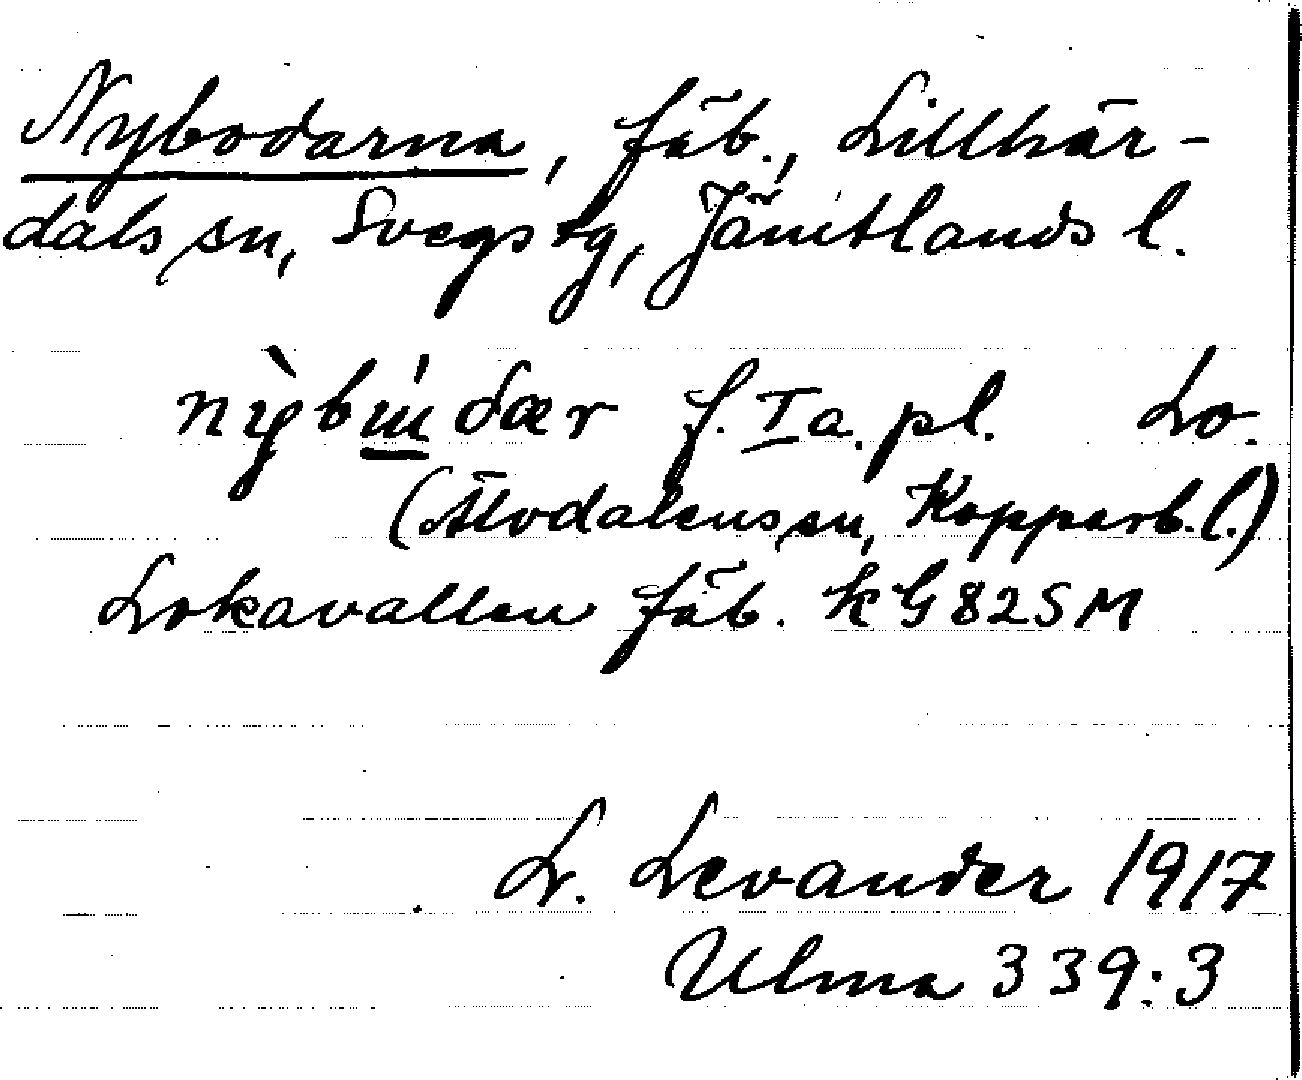 Nybodarna, fäb., Lillhär-
dals sn, Svegs tg, Jämtlands l.
f. I a. pl. Lo.
(Älvdalens sn, Kopparb. l.)
Lokavallen fäb. kG 82SM
L. Levander 1917
Ulma 339:3